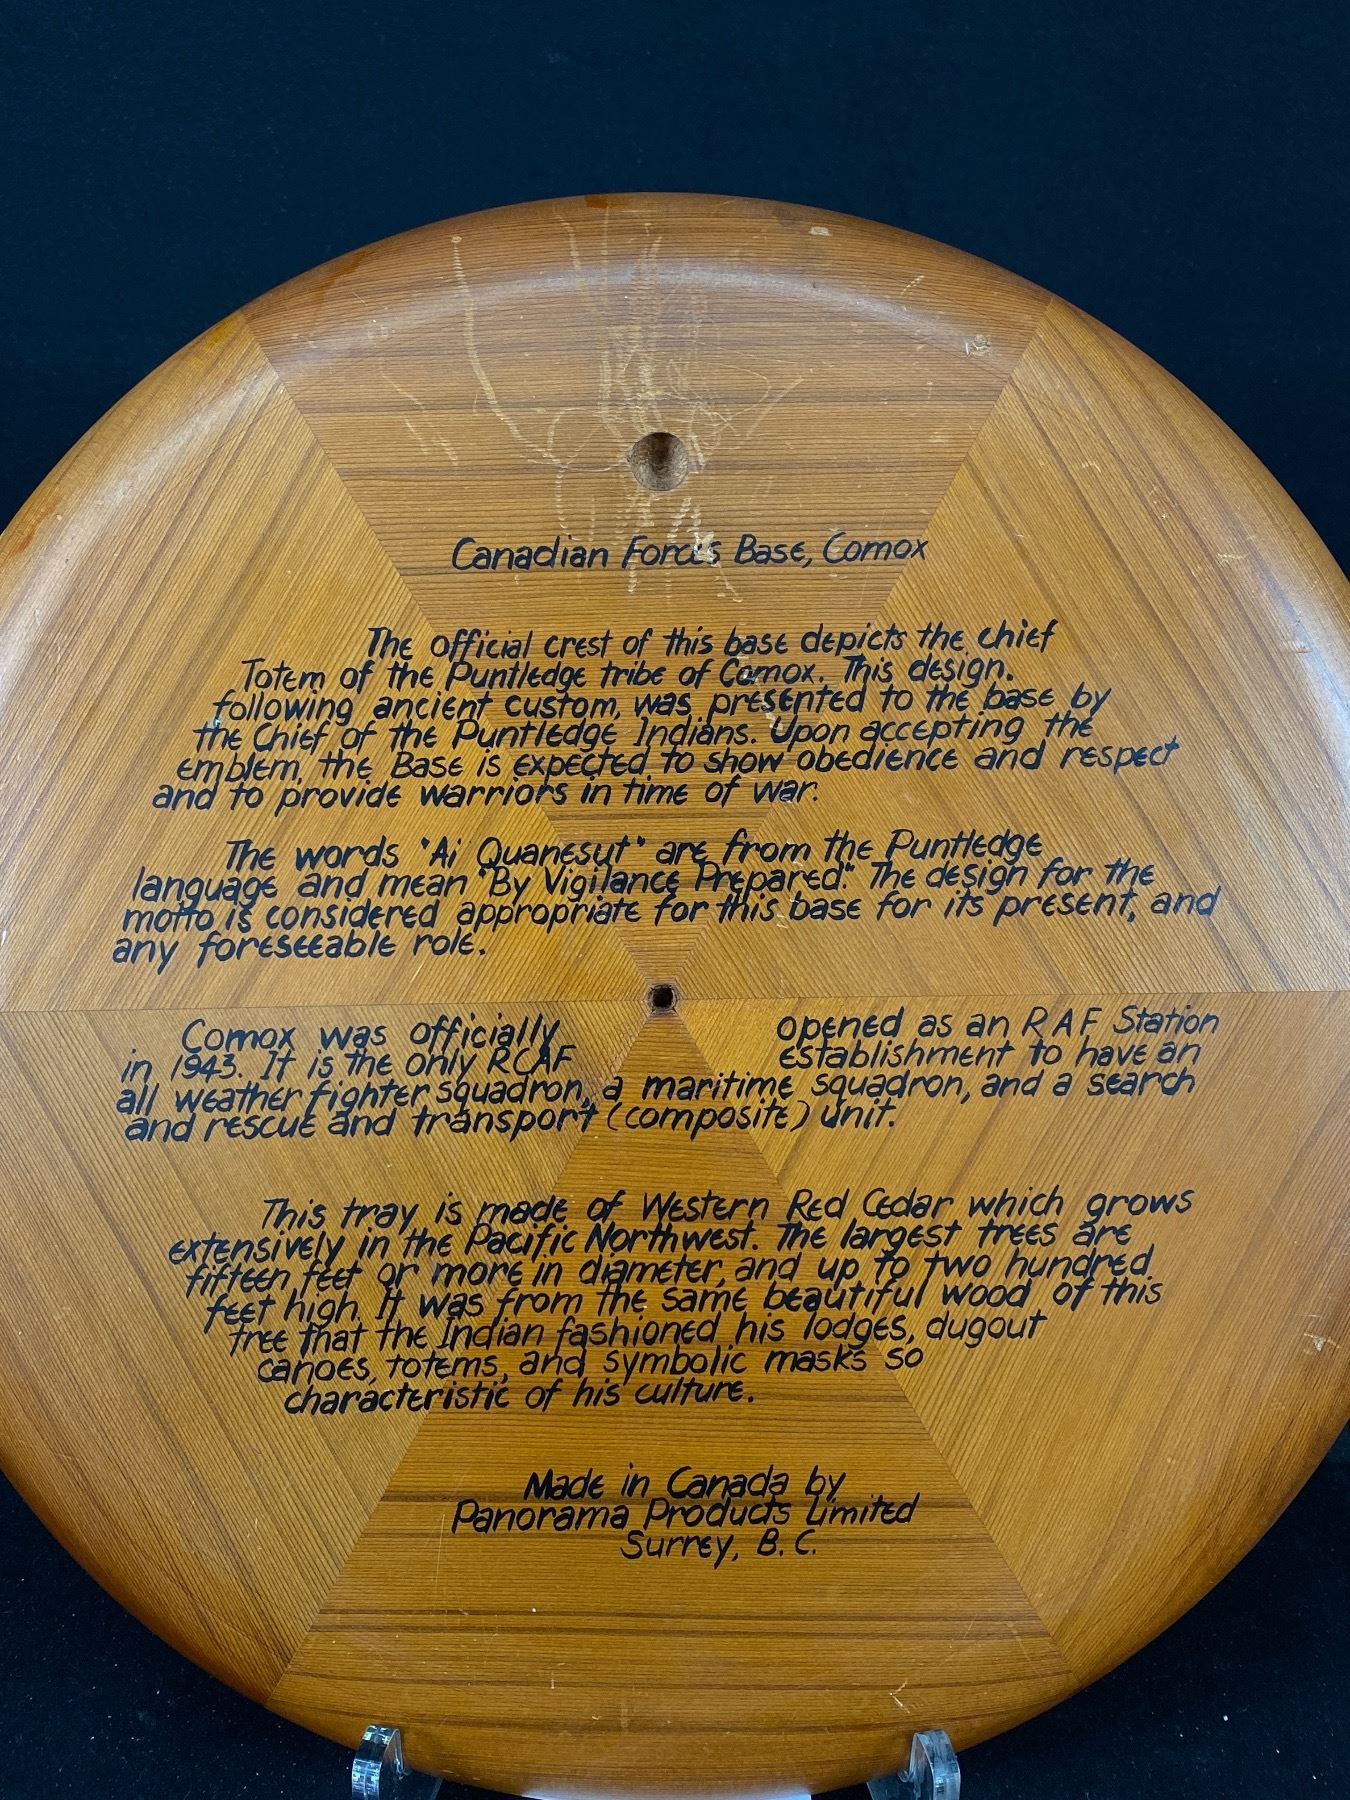 Canadian Forces Base, Comox
The official crest of this base depicts the chief
Totem of the Puntledge tribe of Comox. This design.
following ancient custom, was presented to the base by
the Chief of the Puntledge Indians. Upon accepting the
emblem, the Base is expected to show obedience and respect
and to provide warriors in time of war.
The words "Ai Quanesut" are from the Puntledge
language and mean "By Vigilance Prepared." The design for the
motto is considered appropriate for this base for its present, and
any foreseeable role.
Comox was officially opened as an RAF Station
in 1943. It is the only RCAF establishment to have an
all weather fighter squadron, a maritime squadron, and a search
and rescue and transport (composite) unit.
This tray is made of Western Red Cedar which grows
extensively in the Pacific Northwest. The largest trees are
fifteen feet or more in diameter, and up to two hundred
feet high. It was from the same beautiful wood of this
tree that the Indian fashioned his lodges, dugout
canoes, totems, and symbolic masks so
characteristic of his culture.
Made in Canada by
Panorama Products Limited
Surrey, B.C.